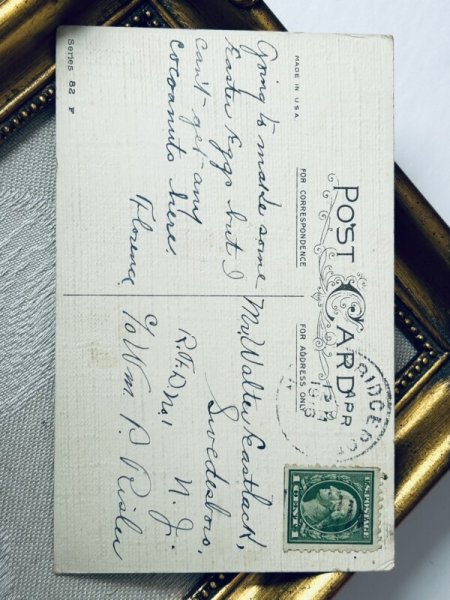 POST CARD
MADE IN U.S.A.
FOR CORRESPONDENCE
FOR ADDRESS ONLY
Series 82 F
Going to make some
Easter Eggs but I
can't get any
cocoanuts here.
Florence
APR
1913
U.S. POSTAGE
1 CENT 1
Mr. Walter Eastlack,
Swedesboro,
R.F.D. No 1 N. J.
c/o Wm. P. Risler